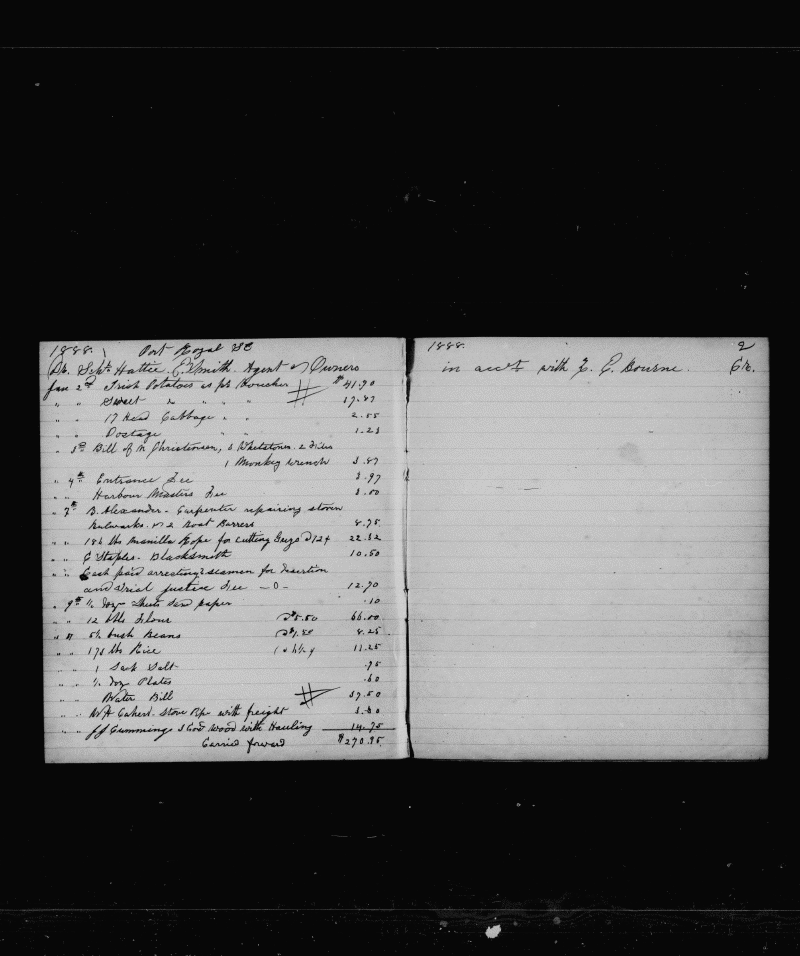 1888. Port Royal SC
Dr. Schr Hattie C. Smith. Agent & Owners
Jan 2nd Irish Potatoes as pr Voucher $41.70
" " Sweet " " " " 17.87
" " 17 Head Cabbage " " 2.55
" " Postage 1.23
" 3rd Bill of N Christensen, 3 Whetstones. 2 Files
1 Monkey Wrench 3.87
" 4th Entrance Fee 3.97
" " Harbour Masters Fee 3.00
" 7th B. Alexander - Carpenter repairing stoven
bulwarks. & 2 Boat Barrers 8.75
" " 186 lbs Manilla Rope for cutting Guys @ 12¢ 22.32
" " C Staples. Blacksmith 10.50
" " Cash paid arresting 2 seamen for desertion
and Trial justice Fee - 0 - 12.70
" 9th ½ Doz Sheets Sand paper .10
" " 12 bbls Flour @ $5.50 66.00
" " 5½ bush Beans @ $1.50 8.25
" " 175 lbs Rice 11.25
" " 1 Sack Salt .75
" " ½ Doz Plates .60
" " Water Bill 37.50
" " W H Stove Pip. with freight
" " J J Cummings 3 Cod Wood with Hauling 14.75
Carried forward $270.95
1888. 2
in acct with E. C. Bourne. Cr.